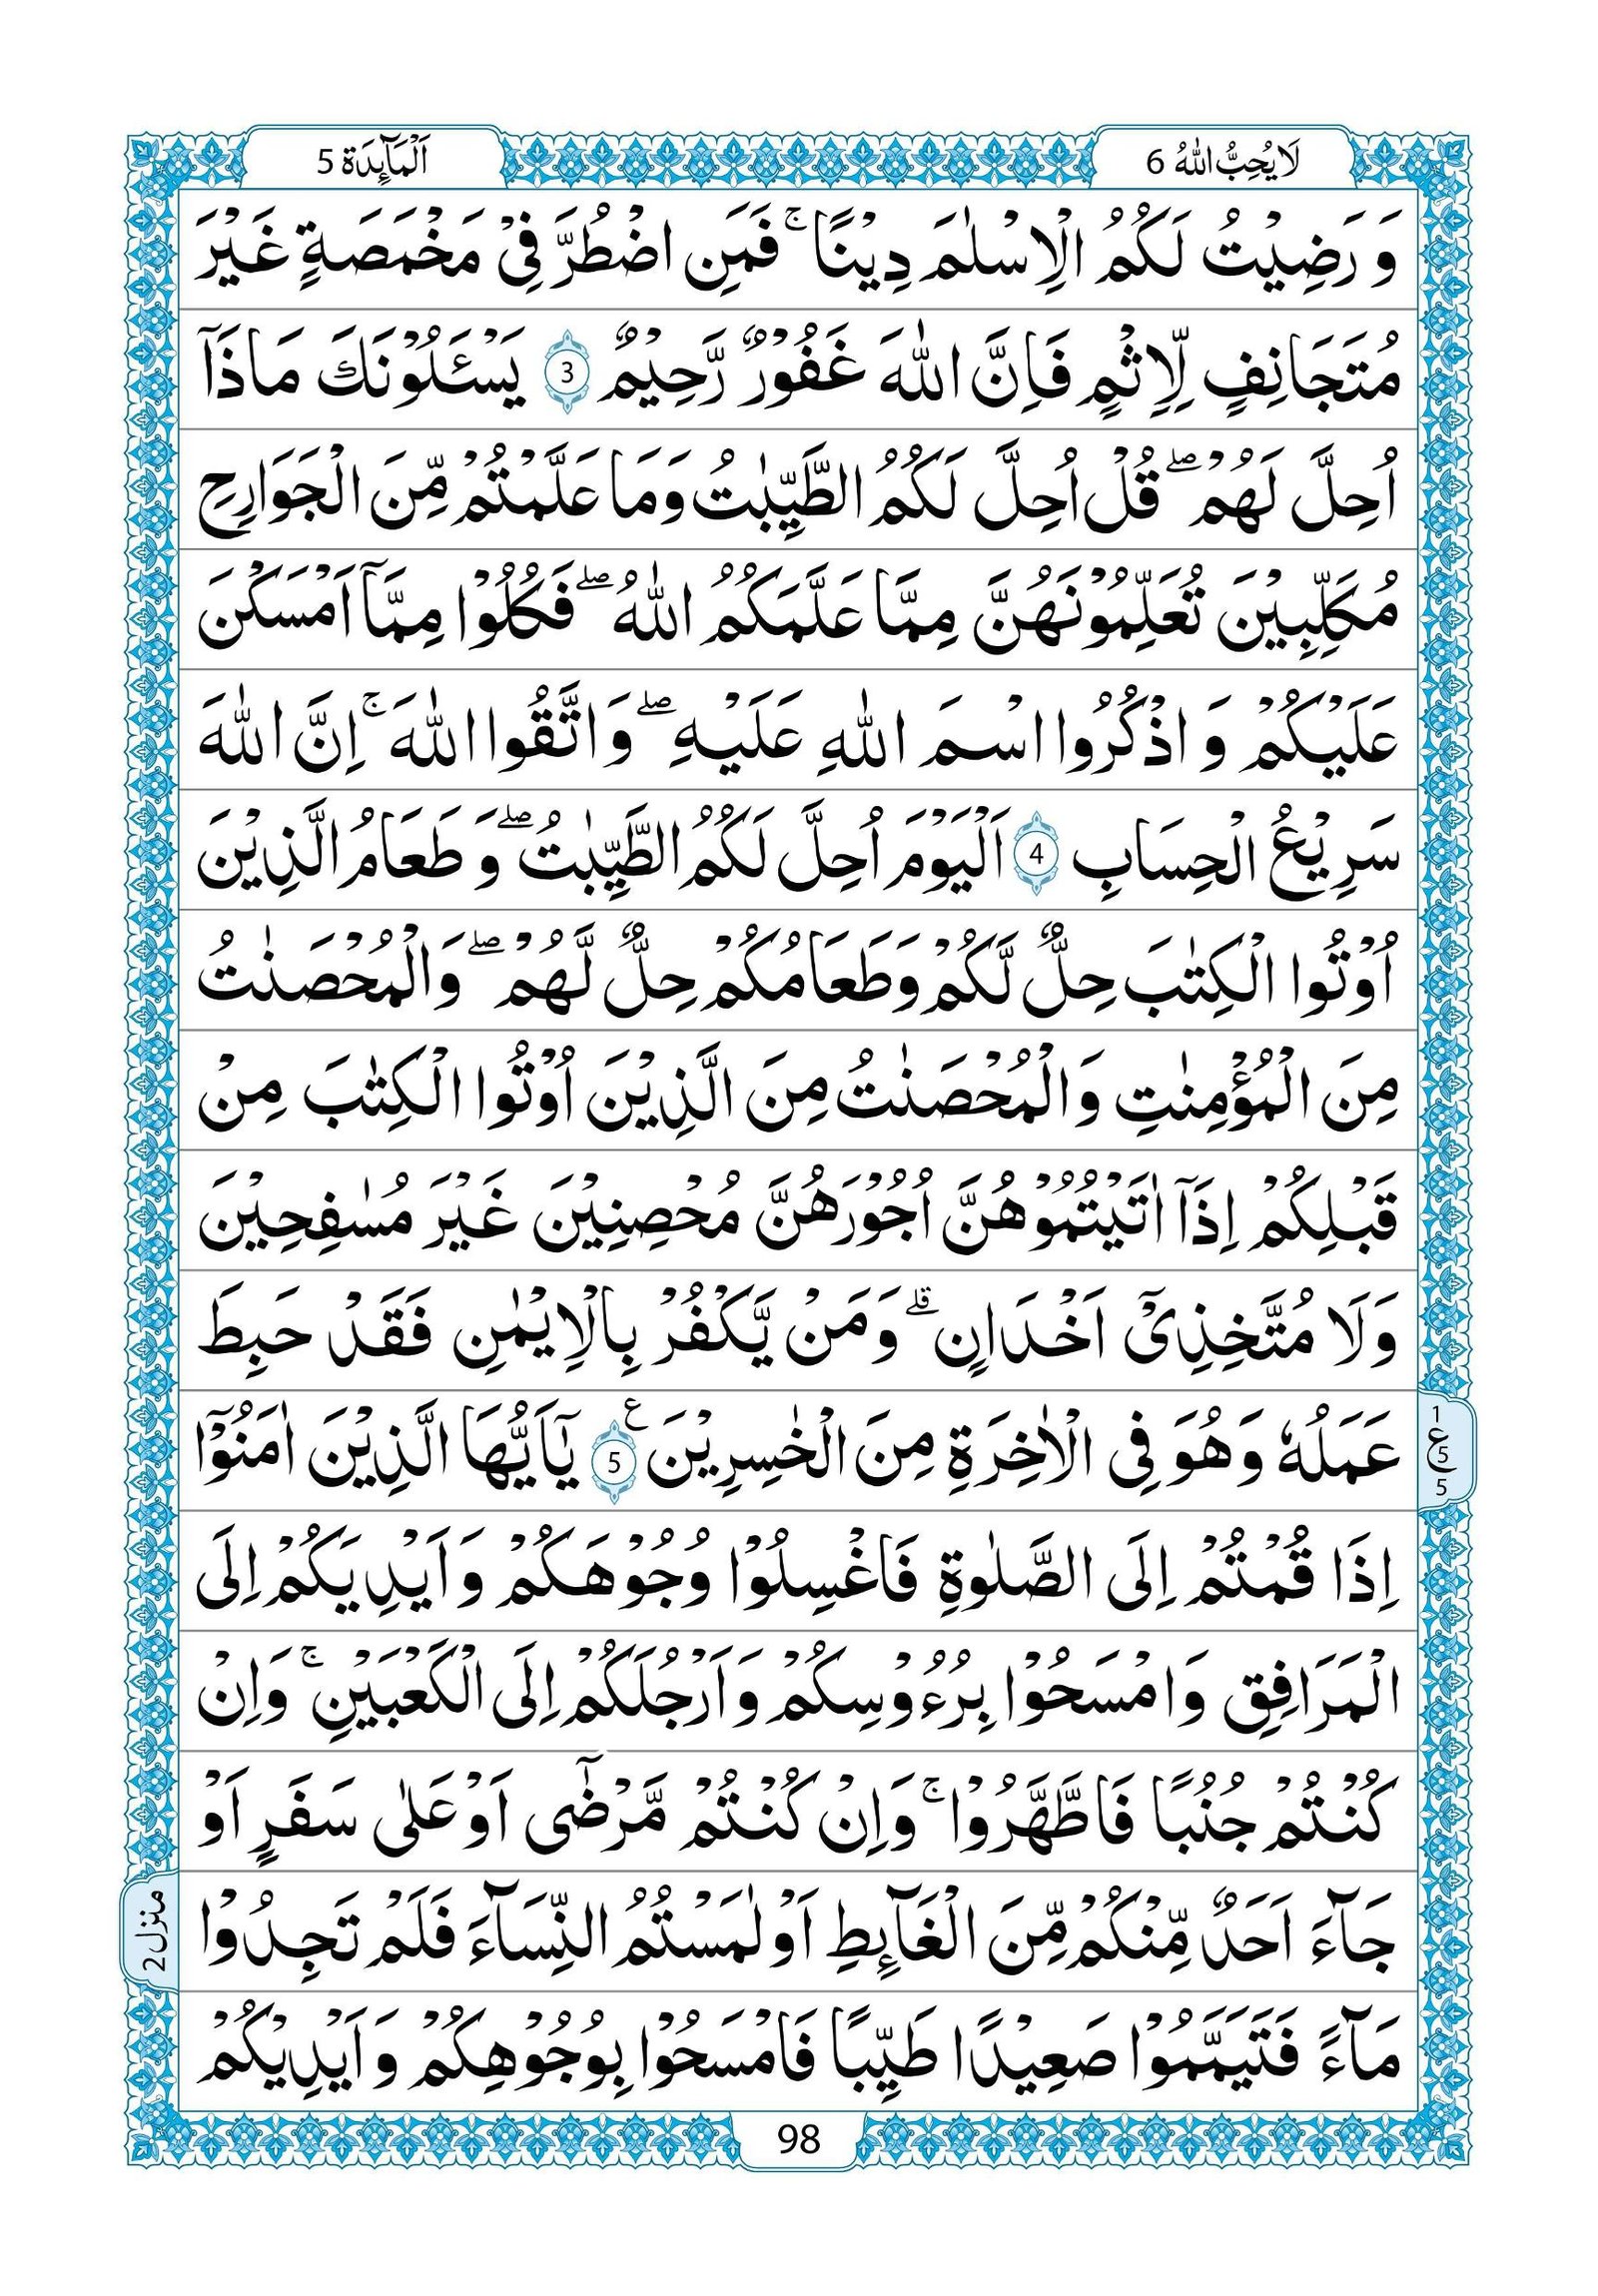 لَا یُحِبُّ اللّٰهُ 6
اَلْمَآىِٕدَة 5
وَ رَضِیْتُ لَكُمُ الْاِسْلٰمَ دِیْنًا ۚ فَمَنِ اضْطُرَّ فِیْ مَخْمَصَةٍ غَیْرَ
مُتَجَانِفٍ لِّاِثْمٍ فَاِنَّ اللّٰهَ غَفُوْرٌ رَّحِیْمٌ 3 یَسْـَٔلُوْنَكَ مَاذَاۤ
اُحِلَّ لَهُمْ ۖ قُلْ اُحِلَّ لَكُمُ الطَّیِّبٰتُ وَمَا عَلَّمْتُمْ مِّنَ الْجَوَارِحِ
مُكَلِّبِیْنَ تُعَلِّمُوْنَهُنَّ مِمَّا عَلَّمَكُمُ اللّٰهُ ۖ فَكُلُوْا مِمَّاۤ اَمْسَكْنَ
عَلَیْكُمْ وَ اذْكُرُوا اسْمَ اللّٰهِ عَلَیْهِ ۖ وَاتَّقُوا اللّٰهَ ۚ اِنَّ اللّٰهَ
سَرِیْعُ الْحِسَابِ 4 اَلْیَوْمَ اُحِلَّ لَكُمُ الطَّیِّبٰتُ ۖ وَ طَعَامُ الَّذِیْنَ
اُوْتُوا الْكِتٰبَ حِلٌّ لَّكُمْ وَطَعَامُكُمْ حِلٌّ لَّهُمْ ۖ وَالْمُحْصَنٰتُ
مِنَ الْمُؤْمِنٰتِ وَالْمُحْصَنٰتُ مِنَ الَّذِیْنَ اُوْتُوا الْكِتٰبَ مِنْ
قَبْلِكُمْ اِذَاۤ اٰتَیْتُمُوْهُنَّ اُجُوْرَهُنَّ مُحْصِنِیْنَ غَیْرَ مُسٰفِحِیْنَ
وَلَا مُتَّخِذِیْۤ اَخْدَانٍ ۗ وَمَنْ یَّكْفُرْ بِالْاِیْمٰنِ فَقَدْ حَبِطَ
عَمَلُهٗ وَهُوَ فِی الْاٰخِرَةِ مِنَ الْخٰسِرِیْنَ ع 5 یٰۤاَیُّهَا الَّذِیْنَ اٰمَنُوْۤا
1 ع 5 5
اِذَا قُمْتُمْ اِلَی الصَّلٰوةِ فَاغْسِلُوْا وُجُوْهَكُمْ وَاَیْدِیَكُمْ اِلَی
الْمَرَافِقِ وَامْسَحُوْا بِرُءُوْسِكُمْ وَاَرْجُلَكُمْ اِلَی الْكَعْبَیْنِ ۚ وَاِنْ
كُنْتُمْ جُنُبًا فَاطَّهَّرُوْا ۚ وَاِنْ كُنْتُمْ مَّرْضٰۤی اَوْ عَلٰی سَفَرٍ اَوْ
جَآءَ اَحَدٌ مِّنْكُمْ مِّنَ الْغَآىِٕطِ اَوْ لٰمَسْتُمُ النِّسَآءَ فَلَمْ تَجِدُوْا
منزل 2
مَآءً فَتَیَمَّمُوْا صَعِیْدًا طَیِّبًا فَامْسَحُوْا بِوُجُوْهِكُمْ وَاَیْدِیْكُمْ
98